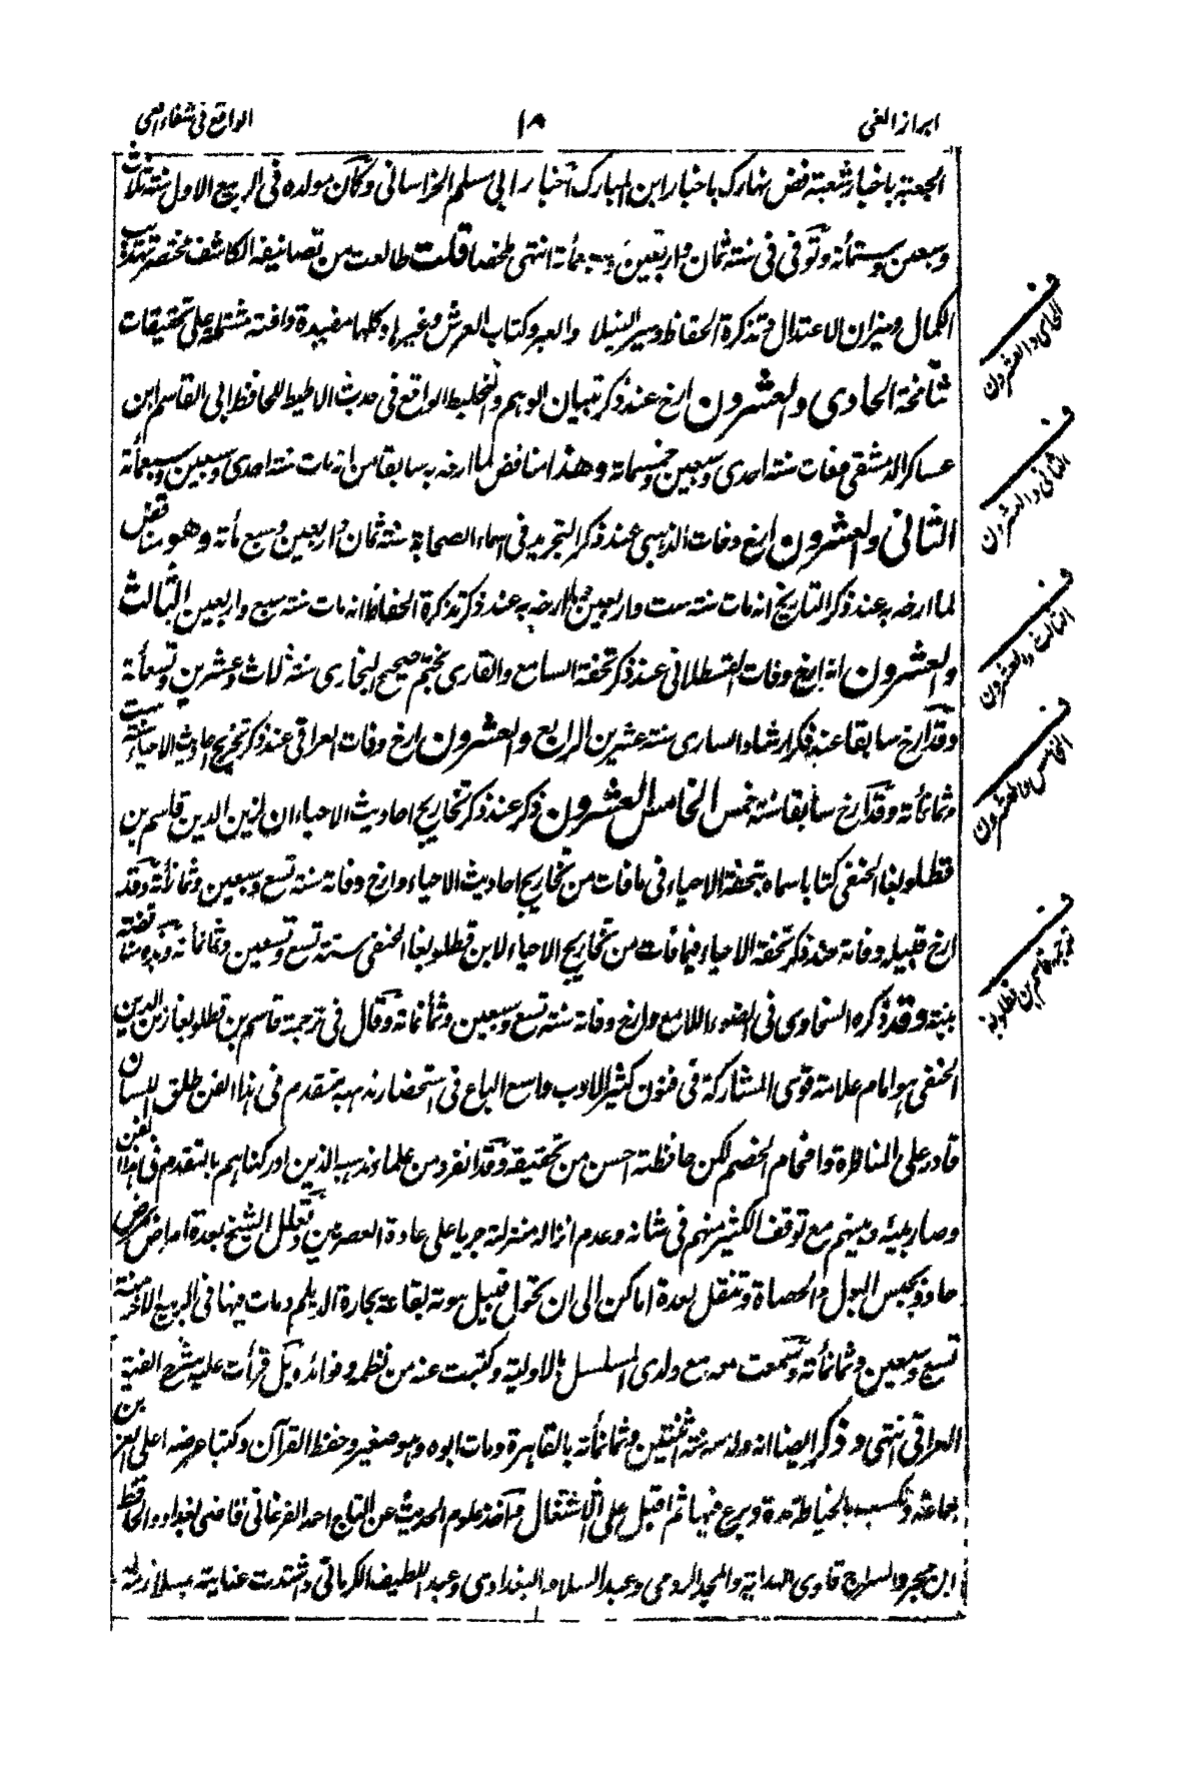 ابراز الغى
١٨
الواقع فى شفاء العى
الجعبة باخبار شعبة فض نهارك باخبار ابن المبارك اخبار ابى مسلم الخراسانى وكان مولده فى الربيع الاول سنة ثلاث
وسبعين وستمأتة وتوفى فى سنة ثمان واربعين وسبعمأتة انتهى ملخصا قلت طالعت من تصانيفه الكاشف مختصر تهذيب
الكمال وميزان الاعتدال وتذكرة الحفاظ وسير النبلا والعبر وكتاب العرش وغيرها وكلها مفيدة نافعة مشتملة على تحقيقات
شامخة الحادى والعشرون ارخ عند ذكر تبيان الوهم والتخليط الواقع فى حديث الاطيط للحافظ ابى القاسم ابن
عساكر الدمشقى وفات سنة احدى وسبعين وخمسمائة وهذا مناقض لما ارخه به سابقا من انه مات سنة احدى وسبعين وسبعمأتة
الثانى والعشرون ارخ وفات الذهبى عند ذكر التجريد فى اسماء الصحابة سنة ثمان واربعين وسبع مأتة وهو مناقض
لما ارخه به عند ذكر التاريخ انه مات سنة ست واربعين ولما ارخه به عند ذكر تذكرة الحفاظ انه مات سنة سبع واربعين الثالث
والعشرون انه ارخ وفات القسطلانى عند ذكر تحفة السامع والقارى بختم صحيح البخارى سنة ثلاث وعشرين وتسعمأتة
وقد ارخ سابقا عند ذكر ارشاد السارى سنة عشرين الرابع والعشرون ارخ وفات العراقى عند ذكر تخريج احاديث الاحياء سنة ست
وثمانمأتة وقد ارخ سابقا سنة خمس الخامس والعشرون ذكر عند ذكر تخاريج احاديث الاحياء ان لزين الدين قاسم بن
قطلوبغا الحنفى كتابا سماه بتحفة الاحياء فى ما فات من تخاريج احاديث الاحياء وارخ وفاته سنة تسع وسبعين وثمانمأتة وقد
ارخ قبيله وفاته عند ذكر تحفة الاحياء فيما فات من تخاريج الاحياء لابن قطلوبغا الحنفى سنة تسع وتسعين وثمانمأتة وهذه مناقضة
بينة وقد ذكره السخاوى فى الضوء اللامع وارخ وفاته سنة تسع وسبعين وثمانمأتة وقال فى ترجمته قاسم بن قطلوبغا زين الدين
الحنفى هو امام علامة قوى المشاركة فى فنون كثير الادب واسع الباع فى استحضار مذهبه متقدم فى هذا الفن طلق اللسان
قادر على المناظرة وافحام الخصم لكن حافظته احسن من تحقيقه وقد انفرد من علماء مذهبه الذين ادركناهم بالتقدم فى هذا الفن
وصار بينه وبينهم مع توقف الكثير منهم فى شانه وعدم انزاله منزلته جريا على عادة العصريين وتعلل الشيخ بعدة امراض كمرض
حاد وبحبس البول والحصاة وتنقل بعدة اماكن الى ان تحول قبيل موته بقاعة بحارة الديلم ومات فيها فى الربيع الآخر سنة
تسع وسبعين وثمانمأتة وسمعت معه مع ولدى المسلسل بالاولية وكتبت عنه من نظمه وفوائده بل قرأت عليه شرح الفية
العراقى انتهى وذكر ايضا انه ولد سنة اثنتين وثمانمأتة بالقاهرة ومات ابوه وهو صغير وحفظ القرآن وكتبا عرضها على العز بن
جماعة وتكسب بالخياطة مدة وبرع فيها ثم اقبل على الاشتغال واخذ علوم الحديث عن التاج احمد الفرغانى قاضى بغداد والحافظ
ابن حجر والسراج قارى الهداية والمجد الرومى وعبد السلام البغدادى وعبد اللطيف الكرمانى واشتدت عنايته بملازمة
الحادى والعشرون
الثانى والعشرون
الثالث والعشرون
الخامس والعشرون
ترجمة قاسم بن قطلوبغا